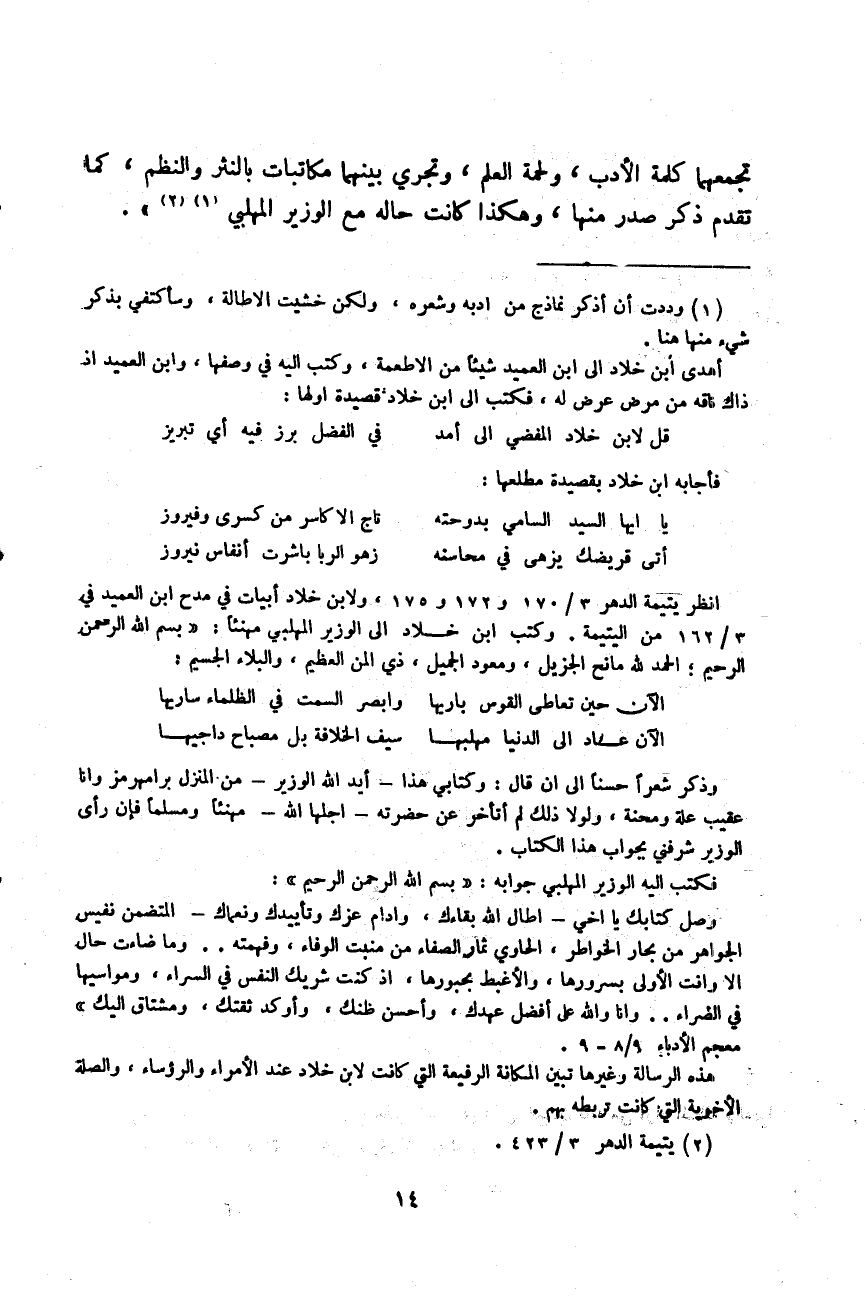 تجمعها كلمة الأدب ، ولحمة العلم ، وتجري بينهما مكاتبات بالنثر والنظم ، كما
تقدم ذكر صدر منها ، وهكذا كانت حاله مع الوزير المهلبي (١) (٢) » .
(١) وددت أن أذكر نماذج من ادبه وشعره ، ولكن خشيت الاطالة ، وسأكتفي بذكر
شيء منها هنا .
أهدى أبن خلاد الى ابن العميد شيئاً من الاطعمة ، وكتب اليه في وصفها ، وابن العميد اذ
ذاك ناقه من مرض عرض له ، فكتب الى ابن خلاد قصيدة اولها :
قل لابن خلاد المفضي الى أمد في الفضل برز فيه أي تبريز
فأجابه ابن خلاد بقصيدة مطلعها :
يا ايها السيد السامي بدوحته تاج الاكاسر من كسرى وفيروز
أتى قريضك يزهى في محاسنه زهو الربا باشرت أنفاس نيروز
انظر يتيمة الدهر ٣ / ١٧٠ و ١٧٢ و ١٧٥ ، ولابن خلاد أبيات في مدح ابن العميد في
٣ / ١٦٢ من اليتيمة . وكتب ابن خـــلاد الى الوزير المهلبي مهنئاً : « بسم الله الرحمن
الرحيم ؛ الحمد لله مانح الجزيل ، ومعود الجميل ، ذي المن العظيم ، والبلاء الجسيم :
الآن حين تعاطى القوس باريها وابصر السمت في الظلماء ساريها
الآن عـاد الى الدنيا مهلبهـا سيف الخلافة بل مصباح داجيهـا
وذكر شعراً حسناً الى ان قال : وكتابي هذا – أيد الله الوزير – من المنزل برامهرمز وانا
عقيب علة ومحنة ، ولولا ذلك لم أتأخر عن حضرته – اجلها الله – مهنئاً ومسلماً فإن رأى
الوزير شرفني بجواب هذا الكتاب .
فكتب اليه الوزير المهلبي جوابه : « بسم الله الرحمن الرحيم » :
وصل كتابك يا اخي – اطال الله بقاءك ، وادام عزك وتأييدك ونعماك – المتضمن نفيس
الجواهر من بحار الخواطر ، الحاوي ثمار الصفاء من منبت الوفاء ، وفهمته . . وما ضاءت حال
الا وانت الأولى بسرورها ، والأغبط بحبورها ، اذ كنت شريك النفس في السراء ، ومواسيها
في الضراء . . وانا والله على أفضل عهدك ، وأحسن ظنك ، وأوكد ثقتك ، ومشتاق اليك »
معجم الأدباء ٨/٩ – ٩ .
هذه الرسالة وغيرها تبين المكانة الرفيعة التي كانت لابن خلاد عند الأمراء والرؤساء ، والصلة
الأخوية التي كانت تربطه بهم .
(٢) يتيمة الدهر ٣ / ٤٢٣ .
١٤